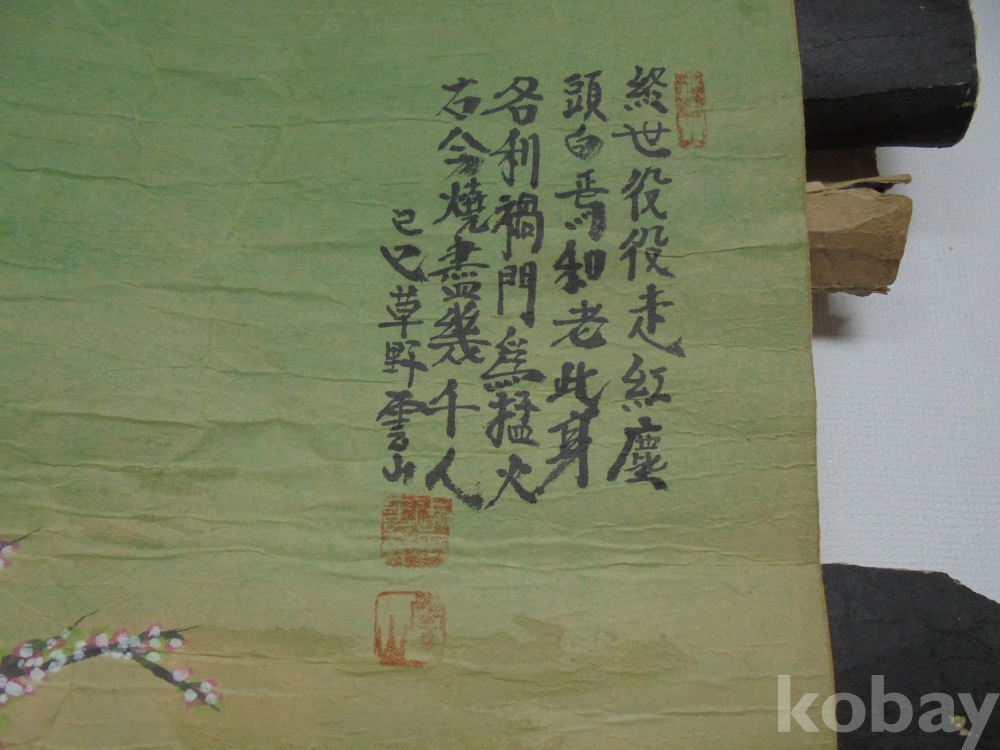 終世役役走紅塵
頭白焉知老此身
各利禍門為猛火
古今燒盡幾千人
己巳 草野雲山
kobay